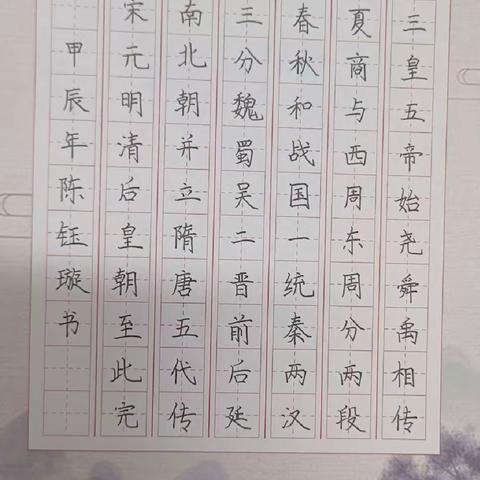 三皇五帝始尧舜禹相传
夏商与西周东周分两段
春秋和战国一统秦两汉
三分魏蜀吴二晋前后延
南北朝并立隋唐五代传
宋元明清后皇朝至此完
甲辰年陈钰璇书